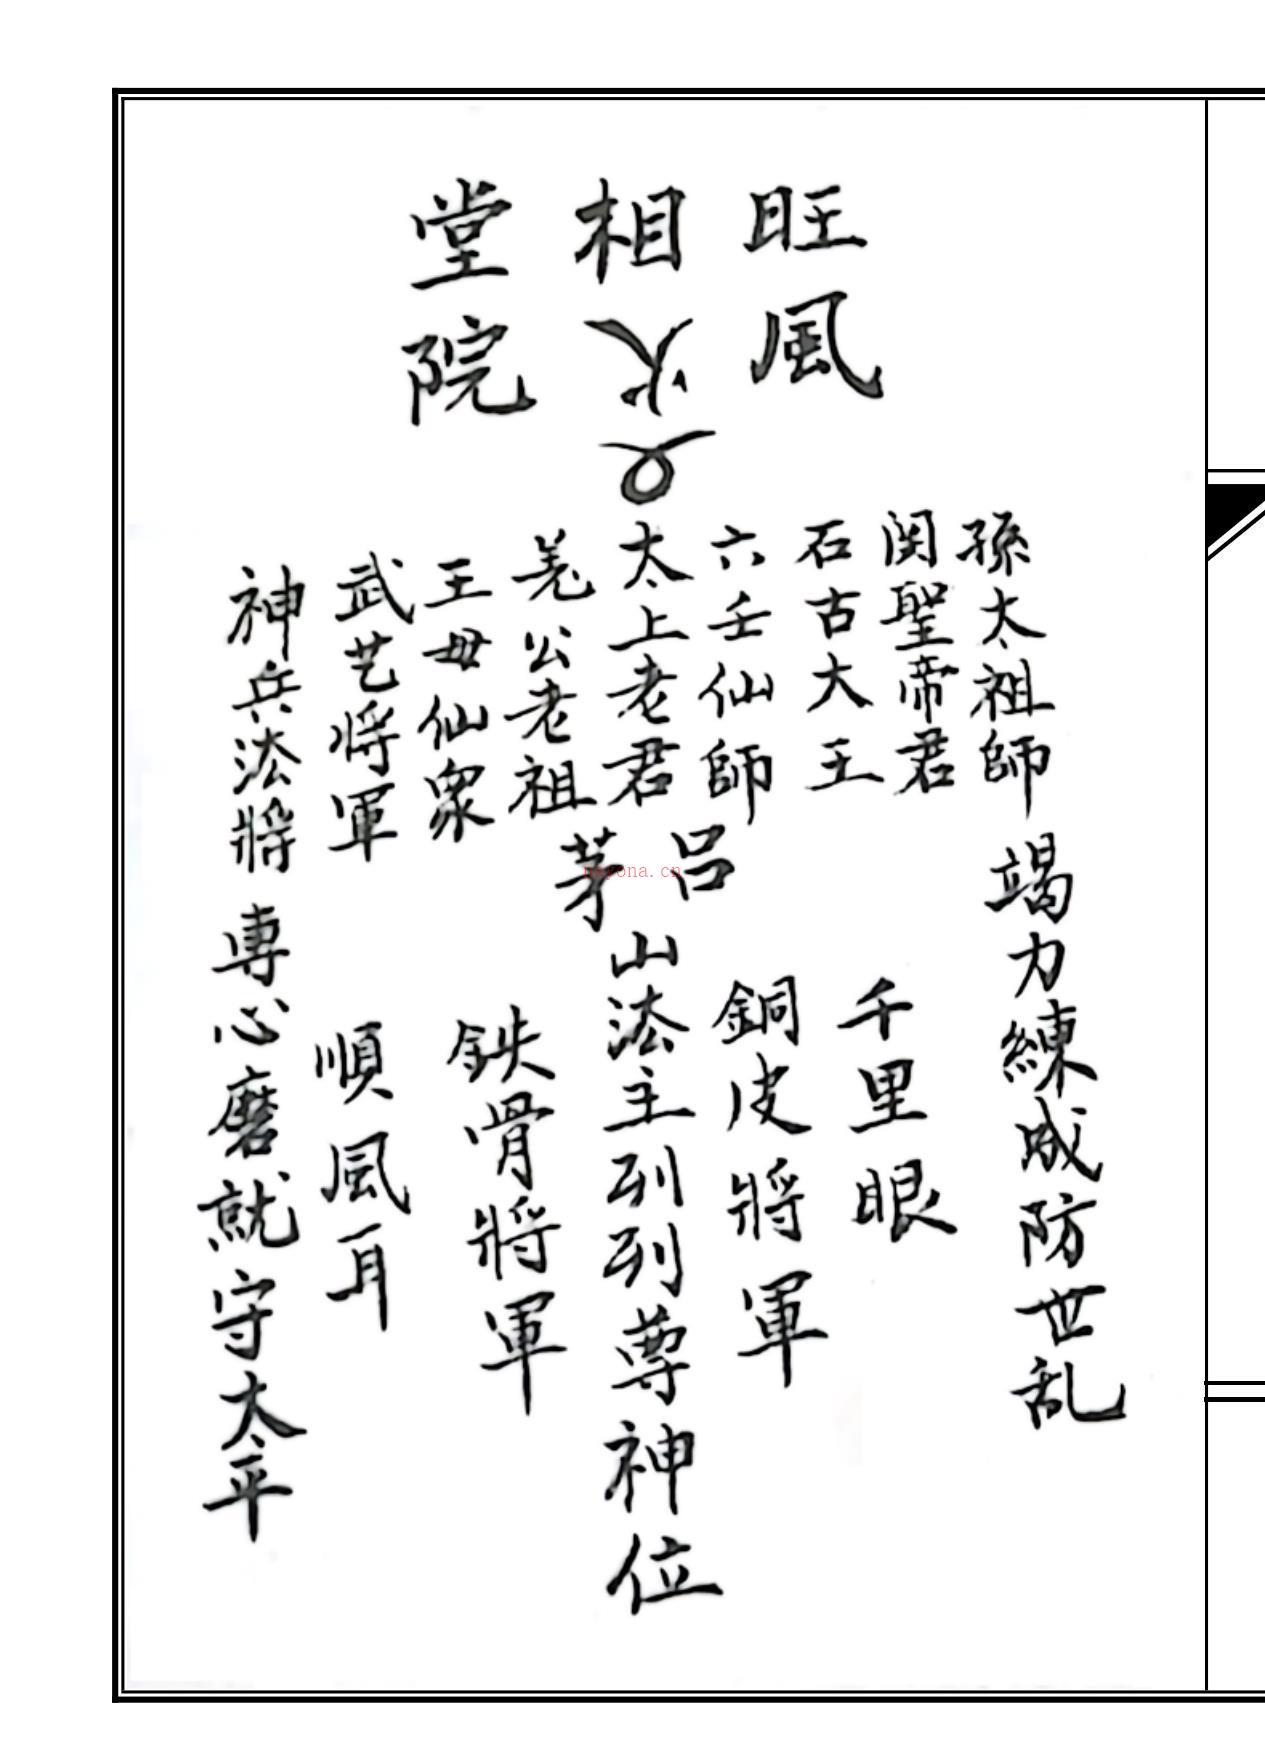 旺風
相
堂院
孫太祖師
関聖帝君
石古大王
六壬仙師
太上老君
羌公老祖
王母仙眾
武艺将軍
神兵法將
吕
茅
山法主列列尊神位
竭力練成防世乱
千里眼
銅皮將軍
鉄骨將軍
順風耳
專心磨就守太平